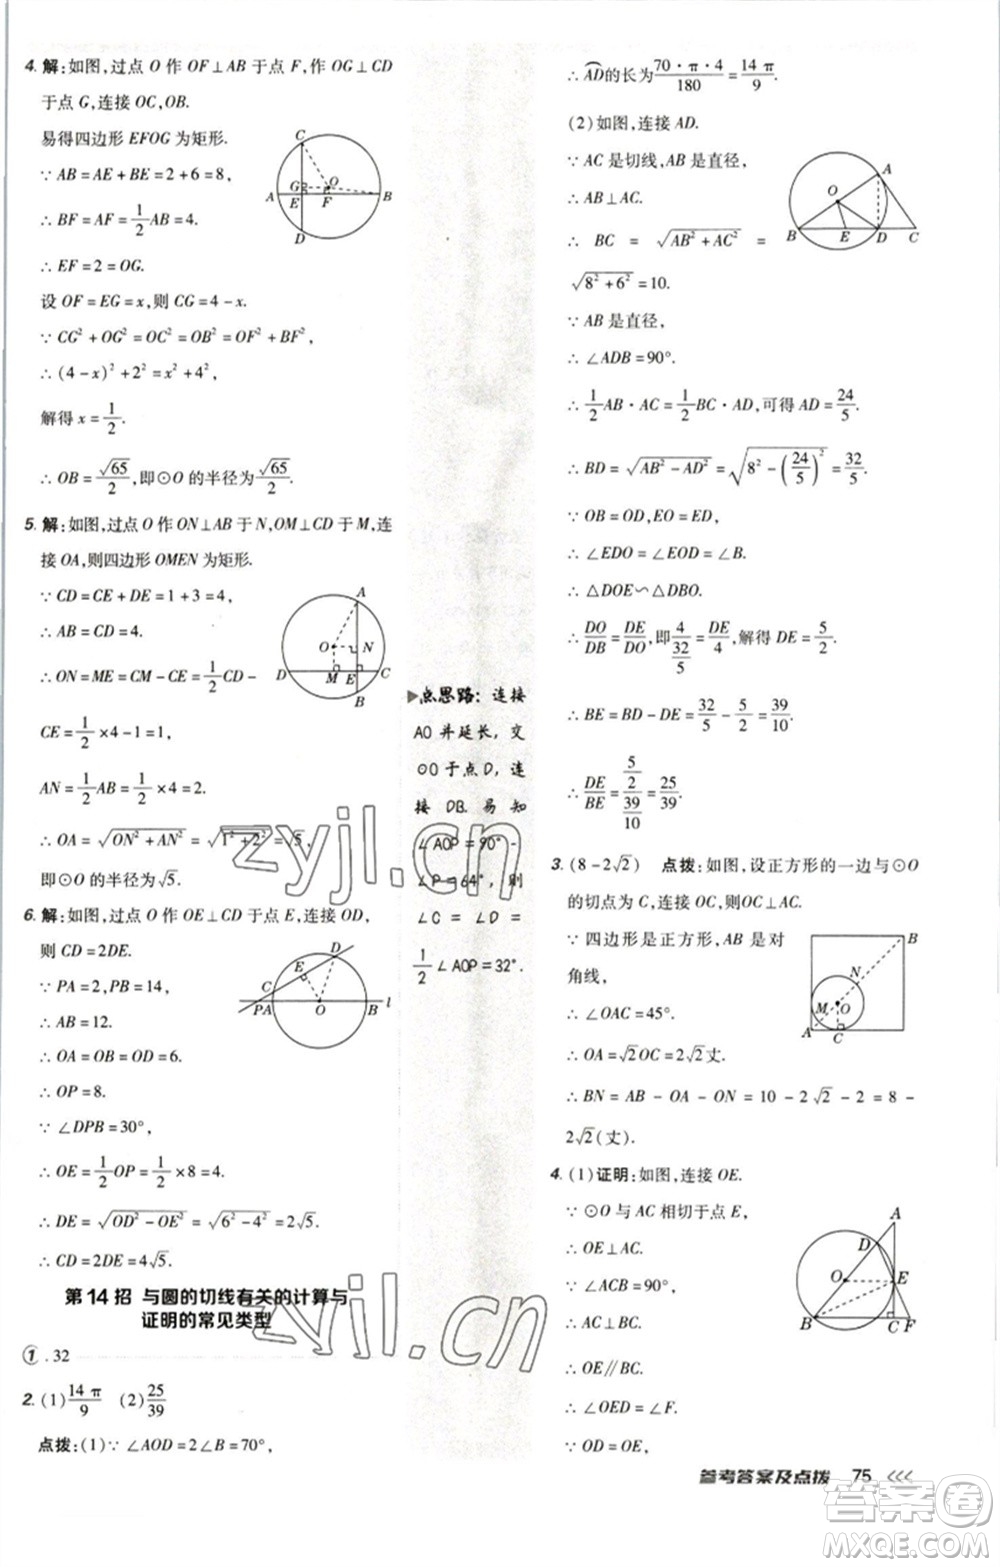 4. 解:如图,过点 O 作 OF⊥AB 于点 F,作 OG⊥CD
于点 G,连接 OC,OB.
易得四边形 EFOG 为矩形.
∵ AB = AE + BE = 2 + 6 = 8,
∴ BF = AF = 1/2 AB = 4.
∴ EF = 2 = OG.
设 OF = EG = x,则 CG = 4 - x.
∵ CG² + OG² = OC² = OB² = OF² + BF²,
∴ (4 - x)² + 2² = x² + 4²,
解得 x = 1/2.
∴ OB = √65/2,即⊙O 的半径为 √65/2.
C
G O
A E F B
D
5. 解:如图,过点 O 作 ON⊥AB 于 N,OM⊥CD 于 M,连
接 OA,则四边形 OMEN 为矩形.
∵ CD = CE + DE = 1 + 3 = 4,
∴ AB = CD = 4.
∴ ON = ME = CM - CE = 1/2 CD -
CE = 1/2 × 4 - 1 = 1,
AN = 1/2 AB = 1/2 × 4 = 2.
∴ OA = √(ON² + AN²) = √(1² + 2²) = √5,
即⊙O 的半径为 √5.
A
O N
D M E C
B
6. 解:如图,过点 O 作 OE⊥CD 于点 E,连接 OD,
则 CD = 2DE.
∵ PA = 2,PB = 14,
∴ AB = 12.
∴ OA = OB = OD = 6.
∴ OP = 8.
∵ ∠DPB = 30°,
∴ OE = 1/2 OP = 1/2 × 8 = 4.
∴ DE = √(OD² - OE²) = √(6² - 4²) = 2√5.
∴ CD = 2DE = 4√5.
D
E
C
P A O B l
第 14 招 与圆的切线有关的计算与
证明的常见类型
1. 32
2. (1) 14π/9 (2) 25/39
点拨:(1)∵ ∠AOD = 2∠B = 70°,
▶点思路:连接
AO并延长,交
⊙O于点D,连
接 DB.易知
∠AOP=90°-
∠P=64°,则
∠C = ∠D =
1/2∠AOP=32°.
∴ AD⌒的长为 70·π·4/180 = 14π/9.
(2)如图,连接 AD.
∵ AC 是切线,AB 是直径,
∴ AB⊥AC.
∴ BC = √(AB² + AC²) =
√(8² + 6²) = 10.
∵ AB 是直径,
∴ ∠ADB = 90°.
∴ 1/2 AB·AC = 1/2 BC·AD,可得 AD = 24/5.
∴ BD = √(AB² - AD²) = √(8² - (24/5)²) = 32/5.
∵ OB = OD,EO = ED,
∴ ∠EDO = ∠EOD = ∠B.
∴ △DOE∽△DBO.
∴ DO/DB = DE/DO,即 4/(32/5) = DE/4,解得 DE = 5/2.
∴ BE = BD - DE = 32/5 - 5/2 = 39/10.
∴ DE/BE = (5/2)/(39/10) = 25/39.
A
O
B E D C
3. (8 - 2√2) 点拨:如图,设正方形的一边与⊙O
的切点为 C,连接 OC,则OC⊥AC.
∵ 四边形是正方形,AB 是对
角线,
∴ ∠OAC = 45°.
∴ OA = √2OC = 2√2丈.
∴ BN = AB - OA - ON = 10 - 2√2 - 2 = 8 -
2√2(丈).
B
N
M O
A C
4. (1)证明:如图,连接 OE.
∵ ⊙O 与 AC 相切于点 E,
∴ OE⊥AC.
∴ ∠OEA = 90°.
∵ ∠ACB = 90°,
∴ ∠OEA = ∠ACB.
∴ OE∥BC.
∴ ∠OED = ∠F.
∵ OD = OE,
A
D
O E
B C F
参考答案及点拨 75
zyjl.cn
zyjl.cn
答案圈
MXQE.COM